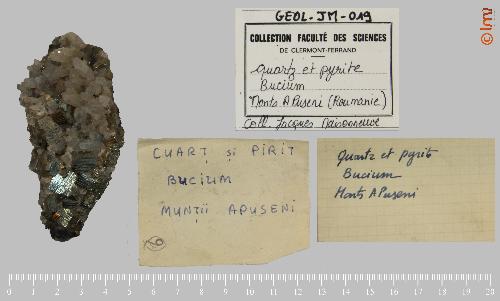 GEOL-JM-019
COLLECTION FACULTÉ DES SCIENCES
DE CLERMONT-FERRAND
Quartz et pyrite
Bucium
Monts APuseni (Roumanie)
Coll. Jacques Maisonneuve
CUARȚ și PIRIT
BUCIUM
MUNȚII APUSENI
Quartz et pyrite
Bucium
Monts APuseni
0 1 2 3 4 5 6 7 8 9 10 11 12 13 14 15 16 17 18 19 20